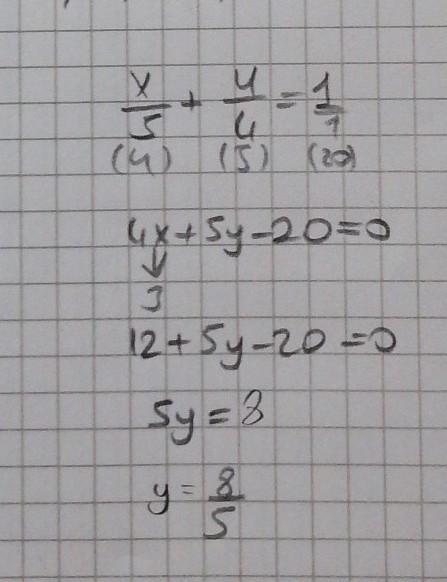 x/5 + y/4 = 1/1
(4) (5) (20)
4x+5y-20=0
↓
3
12+5y-20=0
5y=8
y=8/5